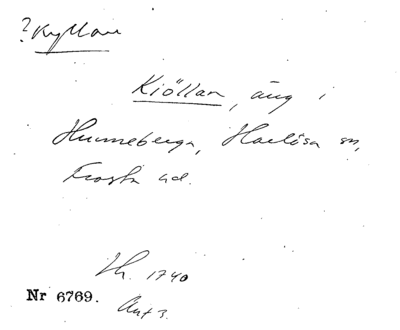 ? Kyllan
Kiöllan, äng i
Hunneberga, Harlösa sn,
Frosta hd.
Lh. 1740
Nr 6769. Akt 3.